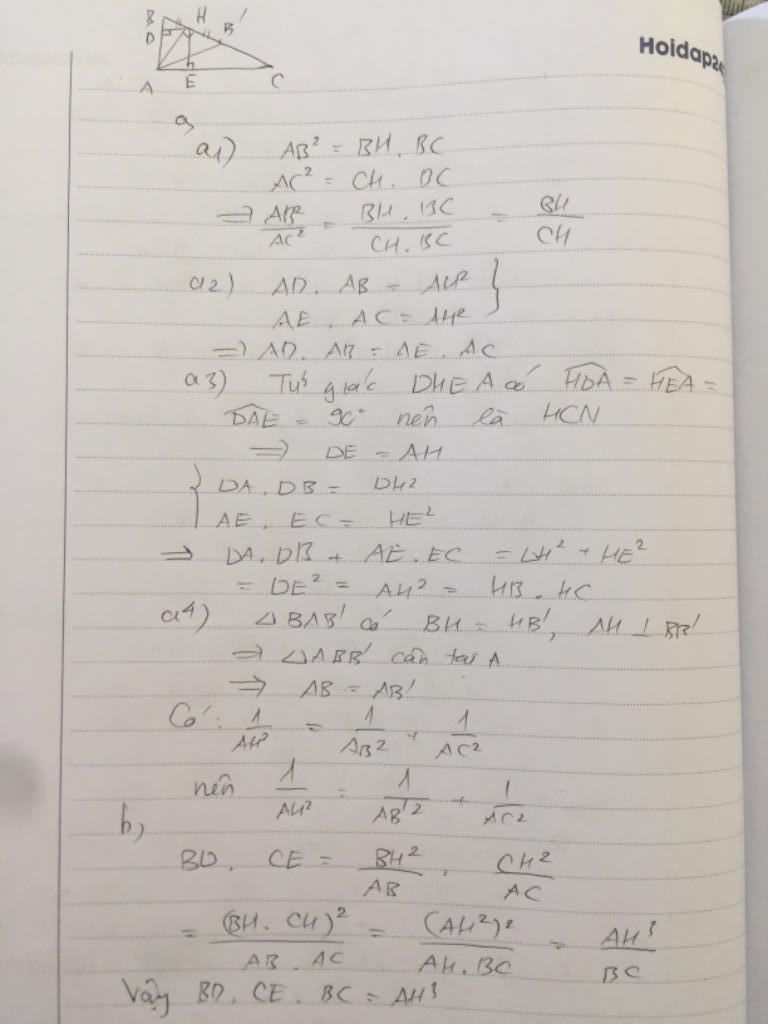 Hoidap24
B H B'
D
A E C
a,
a1) AB² = BH . BC
AC² = CH . BC
⇒ AB²/AC² = BH . BC/CH . BC = BH/CH
a2) AD . AB = AH² }
AE . AC = AH²
⇒ AD . AB = AE . AC
a3) Tứ giác DHEA có HDA = HEA =
DAE = 90° nên là HCN
⇒ DE = AH
{ DA . DB = DH²
AE . EC = HE²
⇒ DA . DB + AE . EC = DH² + HE²
= DE² = AH² = HB . HC
a4) △BAB' có BH = HB', AH ⊥ BB'
⇒ △ABB' cân tại A
⇒ AB = AB'
Có: 1/AH² = 1/AB² + 1/AC²
nên 1/AH² = 1/AB'² + 1/AC²
b,
BD . CE = BH²/AB . CH²/AC
= (BH . CH)²/AB . AC = (AH²)²/AH . BC = AH³/BC
Vậy BD . CE . BC = AH³